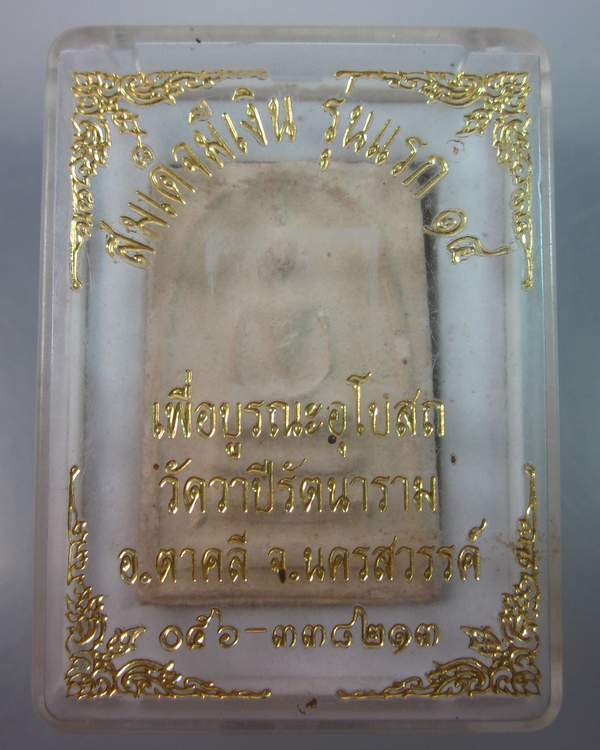 สมเด็จมีเงิน รุ่นแรก ๑๘
เพื่อบูรณะอุโบสถ
วัดวาปีรัตนาราม
อ.ตาคลี จ.นครสวรรค์
๐๕๖-๓๓๘๒๑๓